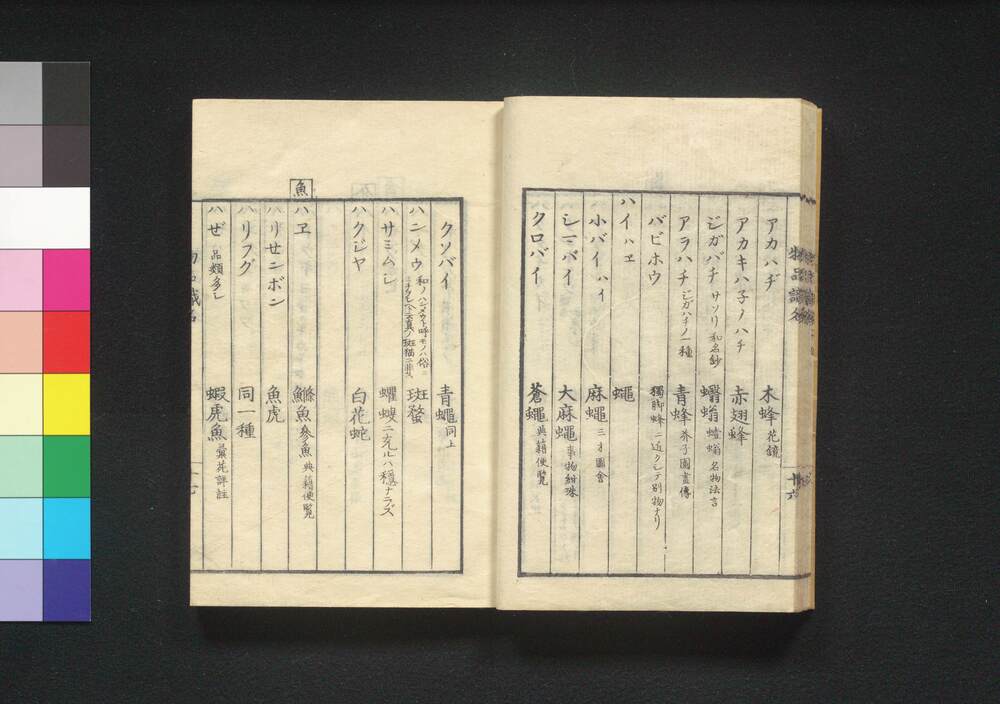 アカハヂ 木蜂 花鏡
アカキハ子ノハチ 赤翅蜂
ジガバチ サソリ 和名鈔 蠮螉 名物法言
アラハチ ジガハチノ一種 青蜂 芥子園畫傳
バビホウ 獨脚蜂ニ近クシテ別物ナリ
ハイ ハヱ 蠅
小バイ ハイ 麻蠅 三才圖會
シマバイ 大麻蠅 事物紺珠
クロバイ 蒼蠅 典籍便覧
物品識名
クソバイ 青蠅 同上
ハンメウ 斑蝥
ハサミムシ 蠼螋ニ充ルハ穏ナラズ
ハクジヤ 白花蛇
魚
ハヱ 鰷魚 參魚 典籍便覧
ハリセンボン 魚虎
ハリフグ 同一種
ハゼ 品類多シ 蝦虎魚 彙苑詳註